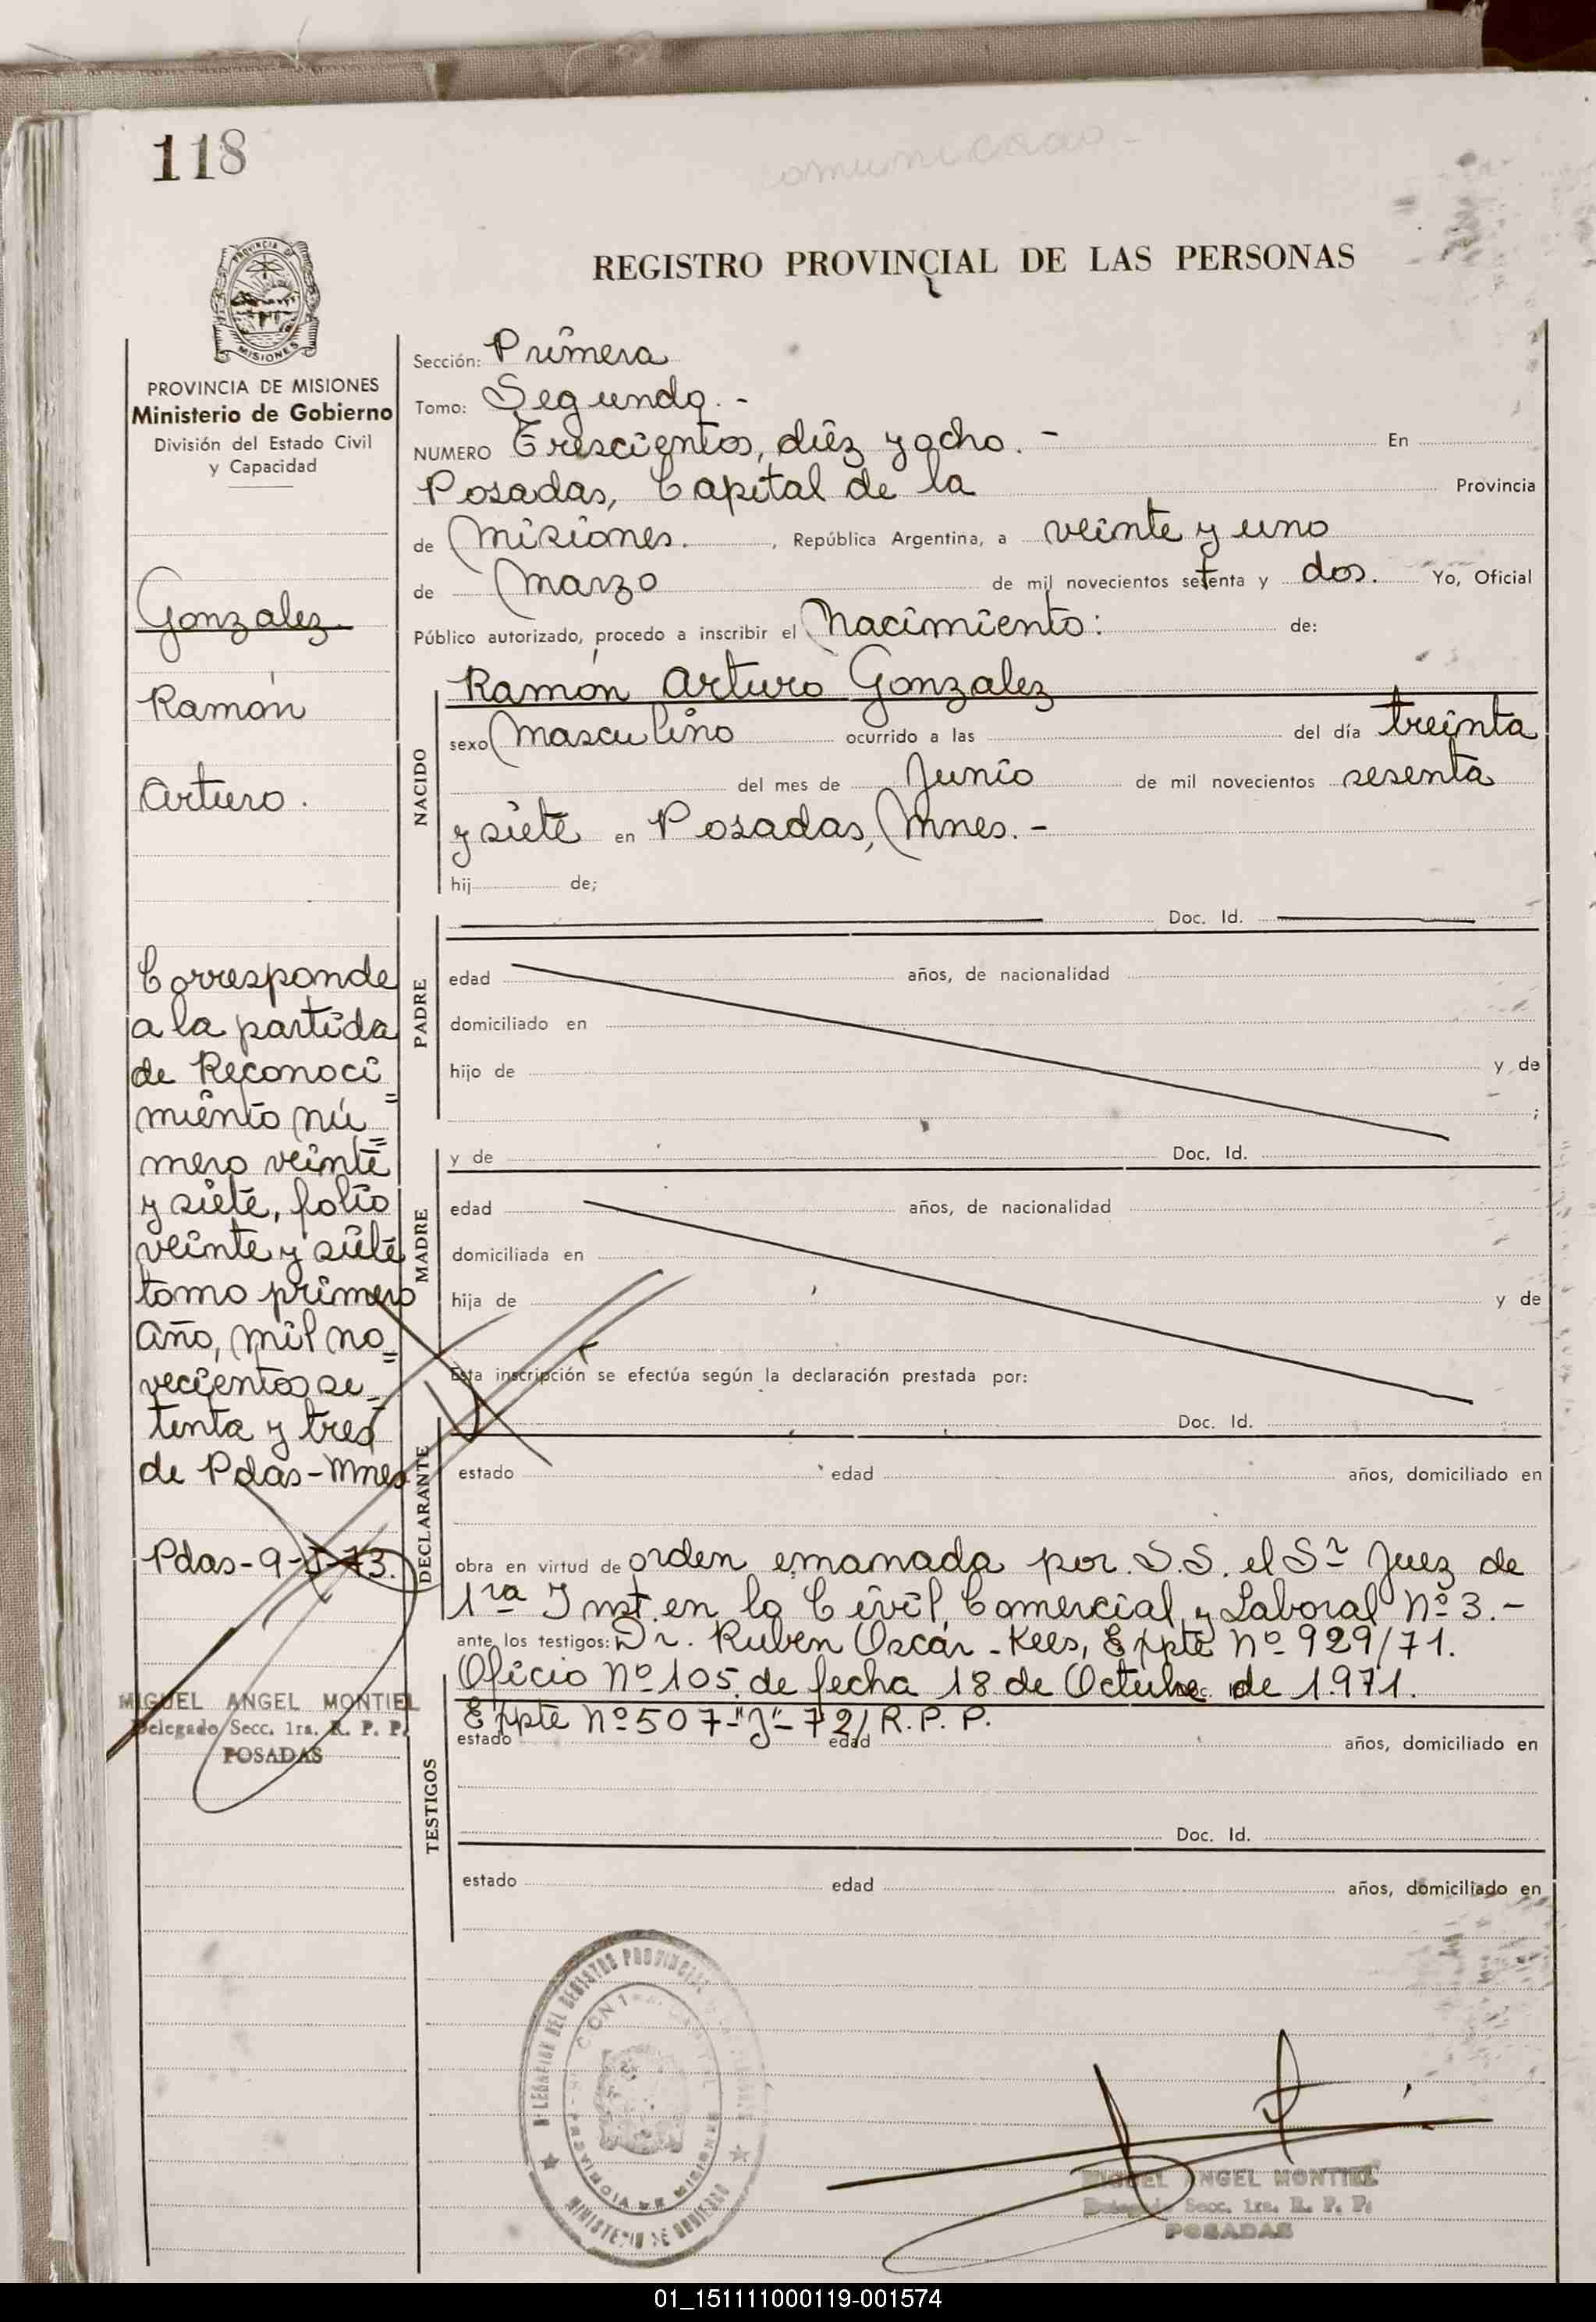 118
REGISTRO PROVINCIAL DE LAS PERSONAS
PROVINCIA DE
MISIONES
PROVINCIA DE MISIONES
Ministerio de Gobierno
División del Estado Civil
y Capacidad
Gonzalez
Ramón
Arturo.
Corresponde
a la partida
de Reconoci=
miento nú=
mero veinte
y siete, folio
veinte y siete
tomo primero
Año, mil no=
vecientos se=
tenta y tres
de Pdas-Mnes
Pdas-9-5-73.
MIGUEL ANGEL MONTIEL
Delegado Secc. 1ra. R. P. P.
POSADAS
Sección: Primera
Tomo: Segundo.-
NUMERO Trescientos, diéz y ocho.- En
Posadas, Capital de la Provincia
de Misiones. , República Argentina, a veinte y uno
de Marzo de mil novecientos setenta y dos. Yo, Oficial
Público autorizado, procedo a inscribir el Nacimiento: de:
NACIDO
Ramón Arturo Gonzalez
sexo Masculino ocurrido a las del día treinta
del mes de Junio de mil novecientos sesenta
y siete en Posadas, Mnes.-
hij de;
PADRE
Doc. Id.
edad años, de nacionalidad
domiciliado en
hijo de y de
;
MADRE
y de Doc. Id.
edad años, de nacionalidad
domiciliada en
hija de y de
Esta inscripción se efectúa según la declaración prestada por:
DECLARANTE
Doc. Id.
estado edad años, domiciliado en
obra en virtud de orden emanada por S.S. el Sr Juez de
1ra Inst. en lo Civil, Comercial y Laboral Nº 3.-
ante los testigos: Dr. Ruben Oscár-Kees, Expte Nº 929/71.
Oficio Nº 105, de fecha 18 de Octubre de 1.971.
Expte Nº 507-"J"-72/R.P.P.
TESTIGOS
estado edad años, domiciliado en
Doc. Id.
estado edad años, domiciliado en
DELEGACION DEL REGISTRO PROVINCIAL
PROVINCIA DE MISIONES
MINISTERIO DE GOBIERNO
MIGUEL ANGEL MONTIEL
Delegado Secc. 1ra. R. P. P.
POSADAS
01_151111000119-001574